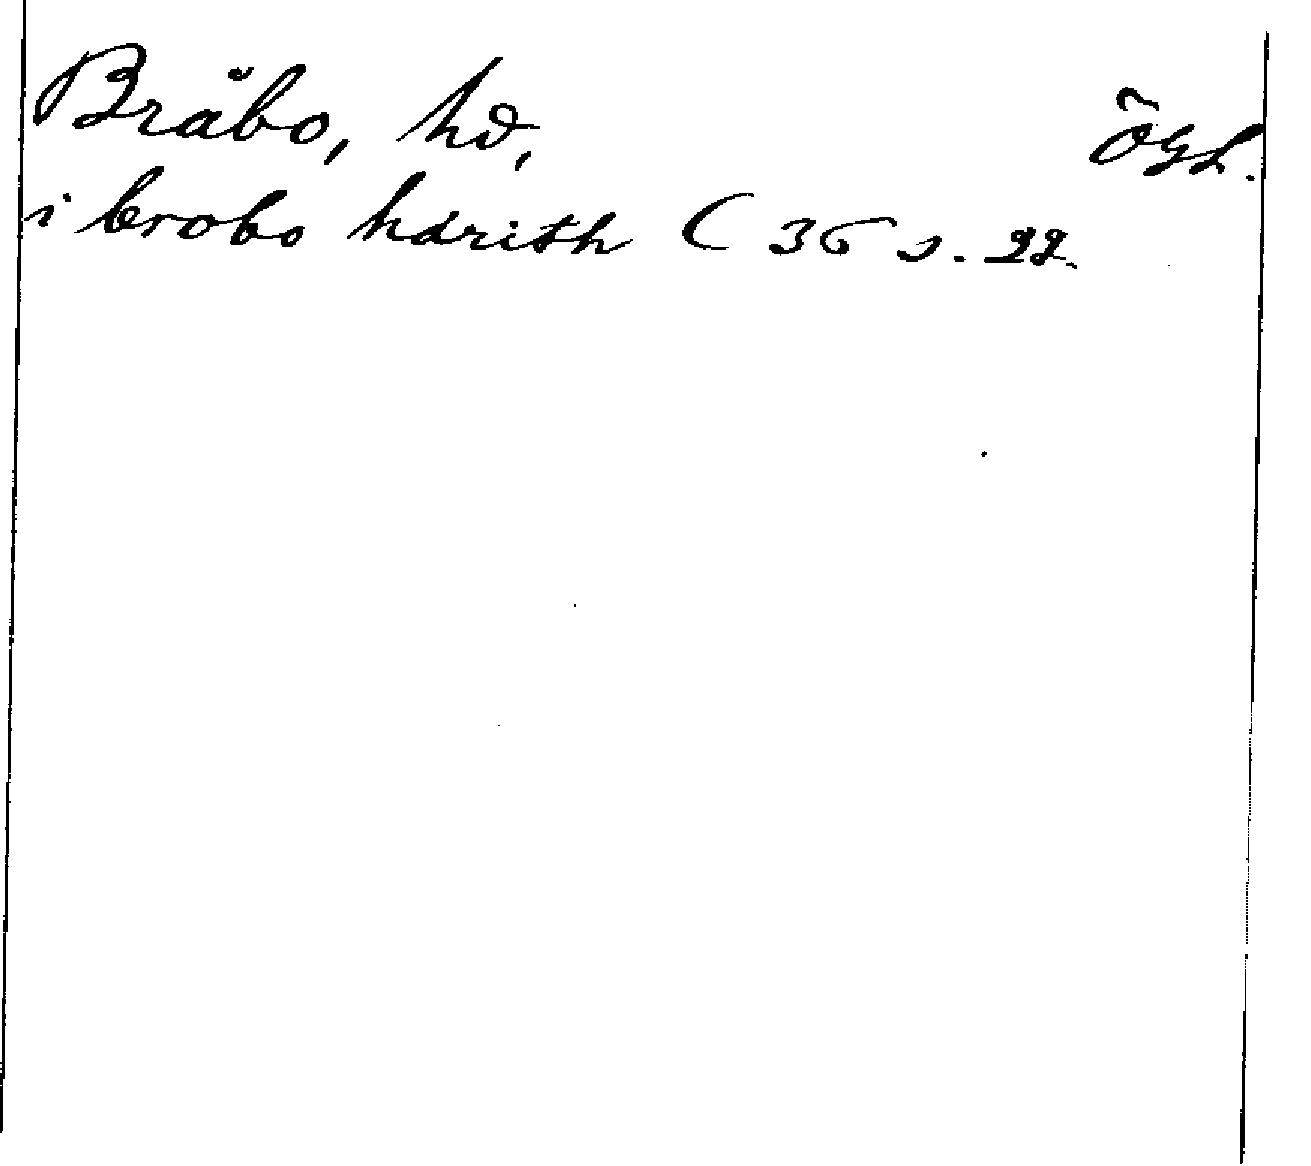 Bråbo, hd, Ögl.
i brobo hdrith C 36 s. 22.